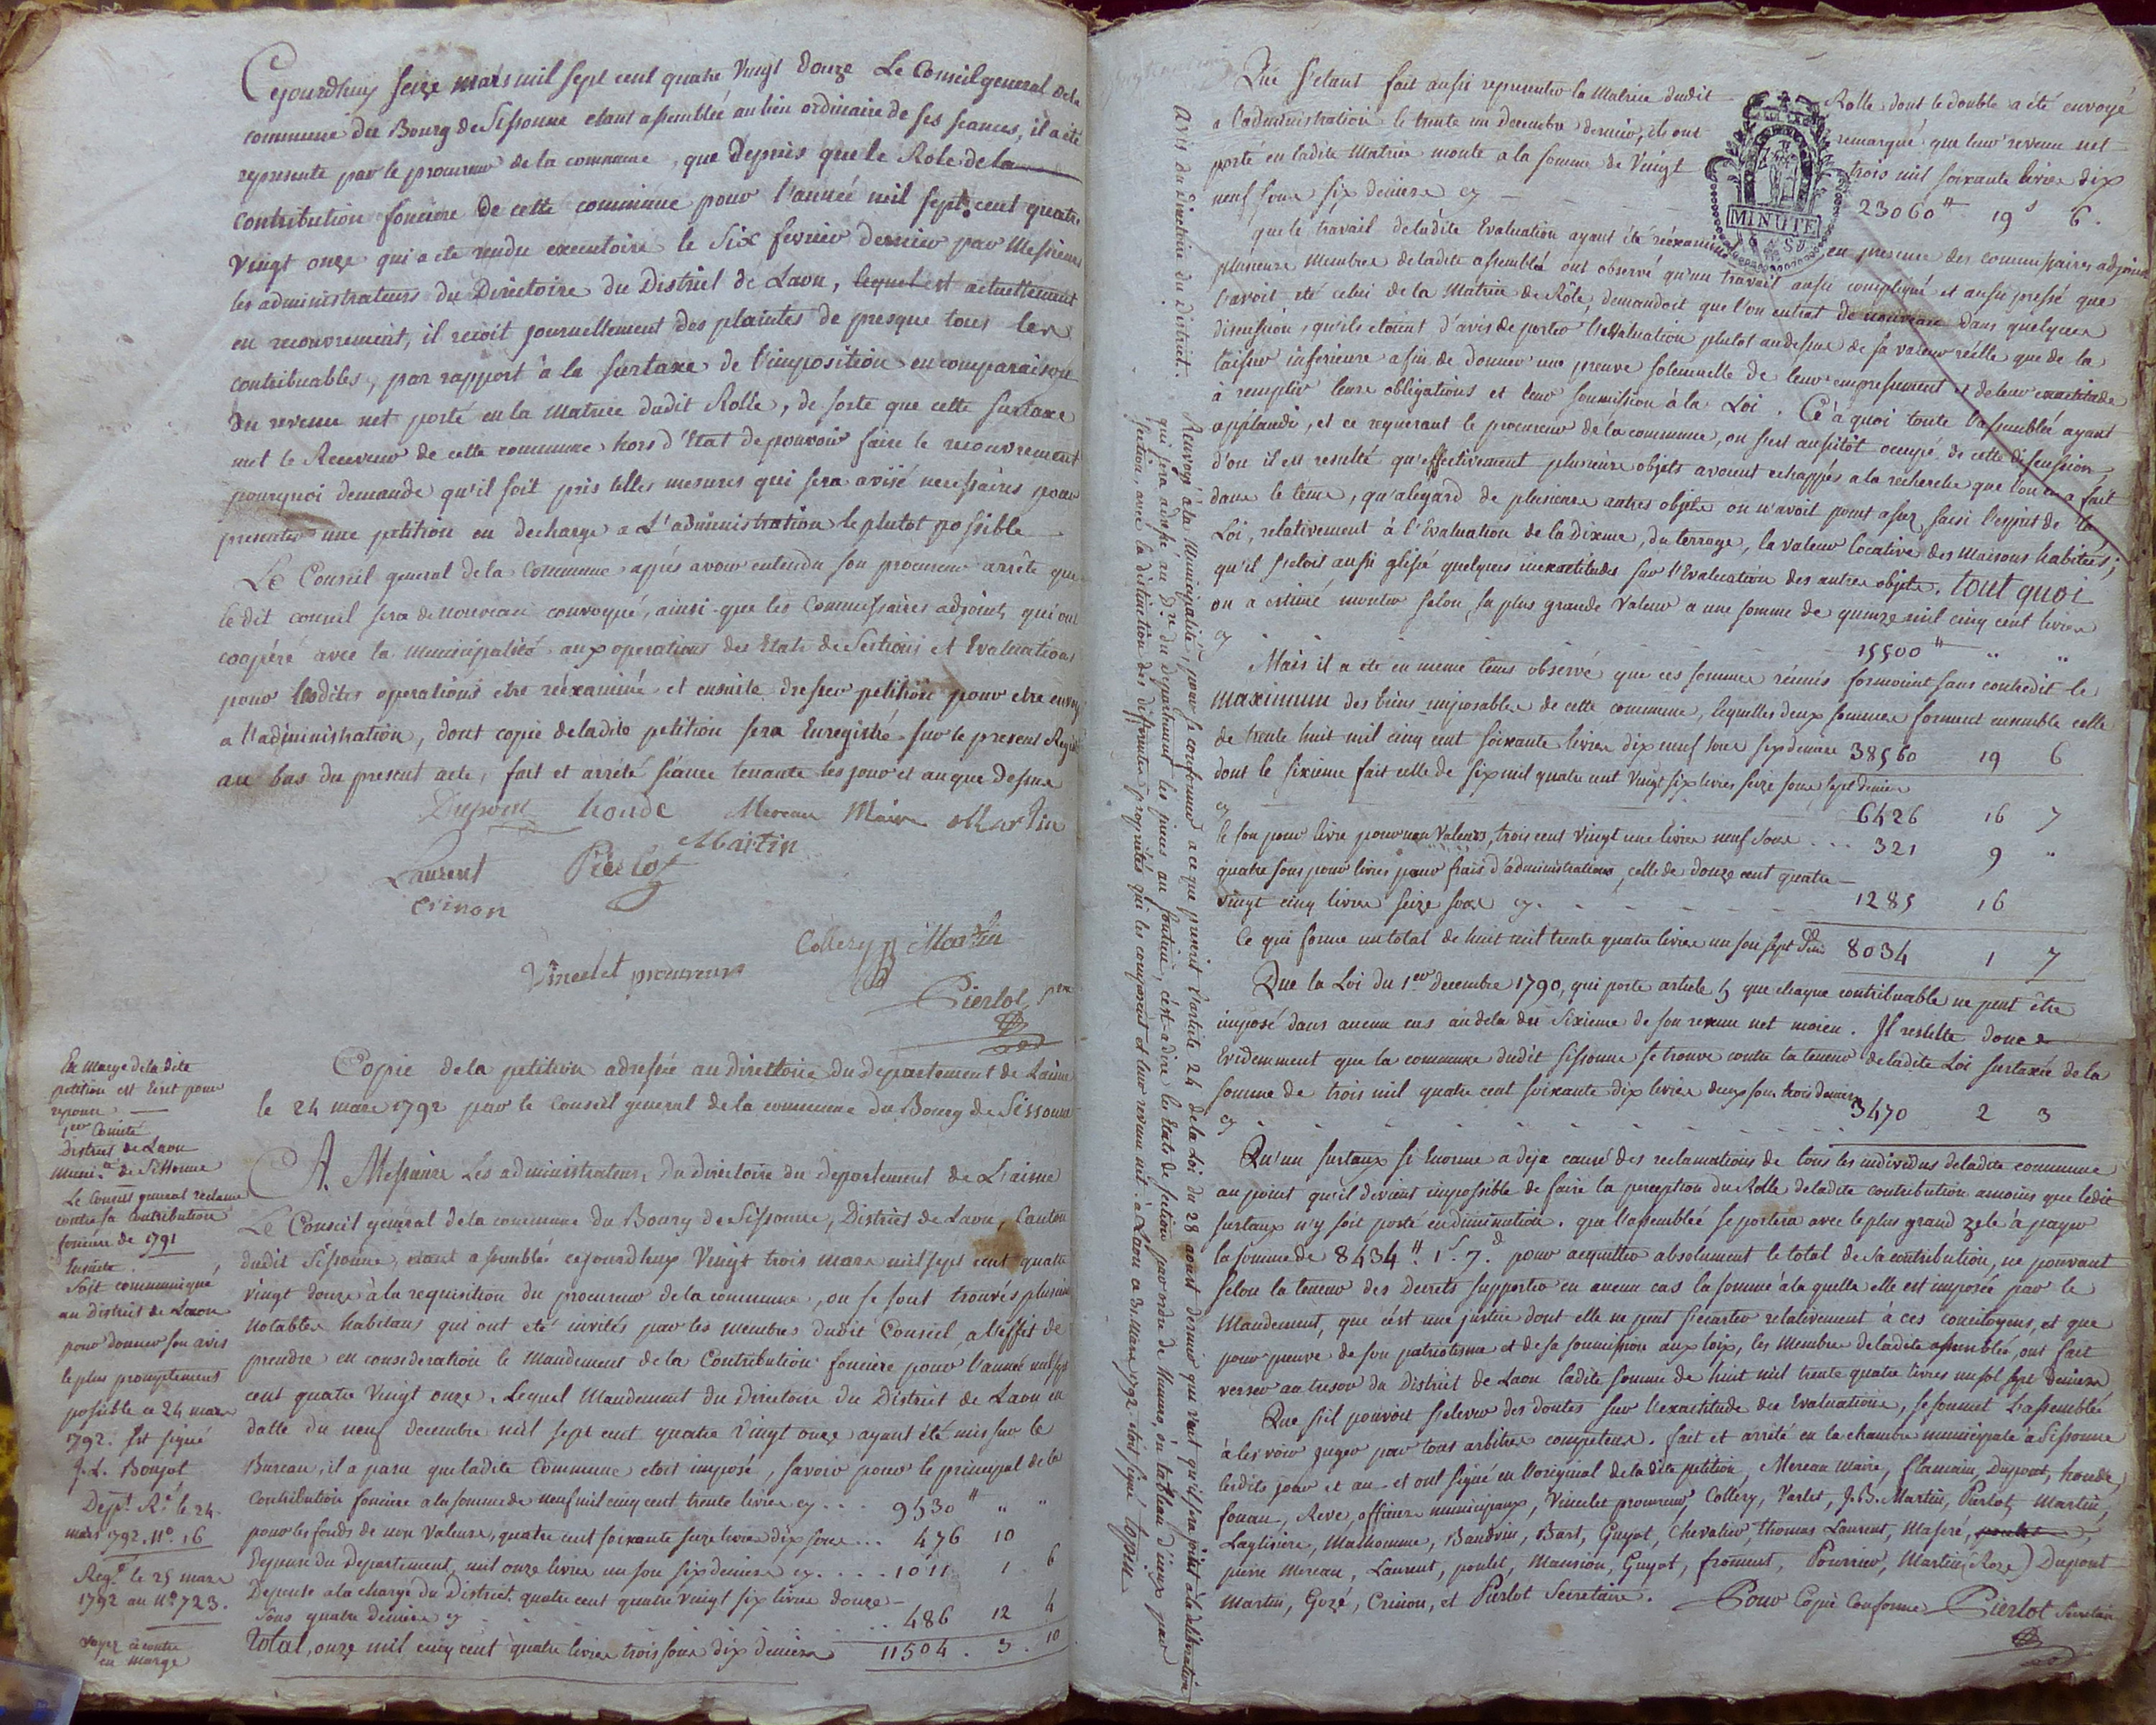 Cejourdhuy seize mars mil sept cent quatre Vingt douze Le Conseil general dela
commune du Bourg de Sissonne etant assemblée au lieu ordinaire de ses seances, il a été
represente par le procureur de la commune, que depuis que le Role de la
contribution fonciere de cette commune pour l'année mil sept. cent quatre
Vingt onze qui a ete rendu executoire le Six fevrier dernier par Messieurs
les administrateurs du Directoire du District de Laon, lequel est actuellement
en recouvrement, il recoit journellement des plaintes de presque tous les
contribuables, par rapport à la surtaxe de l'imposition en comparaison
du revenu net porté en la Matrice dudit Rolle, de sorte que cette surtaxe
met le Receveur de cette commune hors d'Etat de pouvoir faire le recouvrement
pourquoi demande qu'il soit pris telles mesures qui sera avisé necessaires pour
presenter une petition en decharge a L'administration le plutot possible
Le Conseil general de la Commune après avoir entendu son procureur arrête que
le dit conseil sera de nouveau convoqué, ainsi que les Commissaires adjoints qui ont
coopéré avec la Municipalité aux operations des Etats de Sections et Evaluations
pour lesdites operations etre réexaminé et ensuite dresser petition pour etre envoyé
a l'administration, dont copie deladite petition sera Enregistré sur le present Registre
au bas du present acte, fait et arrêté séance tenante les jour et an que dessus
Dupont houde Mereau Maire Martin
Laurent Pierlot Martin
Crinon
Collery Martin
Vinculet procureur
Pierlot Sre
Copie dela petition adressée au Directoire du departement de Laisne
le 24 mars 1792 par le Conseil general de la commune du Bourg de Sissonne
A Messieurs Les administrateurs du directoire du departement de L'aisne
Le Conseil général dela commune du Bourg de Sissonne, District de Laon, Canton
dudit Sissonne, etant assemblés cejourdhuy Vingt trois mars mil sept cent quatre
vingt douze à la requisition du procureur dela commune, ou se sont trouvés plusieurs
Notables habitans qui ont eté invités par les membres dudit Conseil, a l'effet de
prendre en consideration le Mandement dela Contribution fonciere pour l'année mil sept
cent quatre Vingt onze. Lequel Mandement du Directoire du District de Laon en
datte du neuf decembre mil sept cent quatre Vingt onze ayant été mis sur le
Bureau, il a paru que ladite Commune etoit imposé, savoir pour le principal de la
Contribution fonciere a la somme de neuf mil cinq cent trente livres cy ... 9530 " " "
pour les fonds de non Valeurs, quatre cent soixante seize livres dix sous ... 476 10
Depense du Departement, mil onze livres un sou six deniers cy .... 1011 1 6
Depense a la charge du District quatre cent quatre vingt six livres douze
Sous quatre deniers cy .. 486 12 4
Total, onze mil cinq cent quatre livres trois sous dix deniers 11504 . 3 . 10
En Marge de la dite
petition est Ecrit pour
reponse
1er Comité
District de Laon
Munité de Sissonne
Le Conseil general reclame
contre sa contribution
fonciere de 1791
Ensuite
Soit communiqué
au district de Laon
pour donner son avis
le plus promptement
possible ce 24 mars
1792. Est signé
J. L. Boujot
Dept. Ré le 24
mars 1792. No. 16
Regé le 25 mars
1792 au No 723.
voyez ci contre
en marge
Que s'etant fait aussi representer la Matrice dudit Rolle dont le double a été envoyé
a l'administration le trente un Decembre dernier, ils ont remarqué que leur revenu net
porté en ladite Matrice monte a la somme de Vingt trois mil soixante livres dix
neuf sous six deniers cy 23060" 19s 6.
MINUTE
que le travail deladite Evaluation ayant été réexaminé en presence des commissaires adjoints
plusieurs membres deladite assemblée ont observé qu'un travail aussi compliqué et aussi pressé que
l'avoit eté celui de la Matrice de Rôle, demandoit que l'on entrat de nouveau dans quelques
discussion, qu'ils etoient d'avis de porter l'évaluation plutot audessus de sa valeur réelle que de la
laisser inferieure afin de donner une preuve solennelle de leur empressement et de leur exactitude
à remplir leurs obligations et leur soumission à la Loi. Ce à quoi toute l'assemblée ayant
applaudi, et ce requerant le procureur de la commune, on s'est aussitôt occupé de cette discussion
d'ou il est resulté qu'effectivement plusieurs objets avoient echappés a la recherche que l'on en a fait
dans le tems, qu'alegard de plusieurs autres objets on n'avoit point assez saisi l'esprit de la
Loi, relativement à l'Evaluation de la dixme, du terrage, la valeur locative des Maisons habitées;
qu'il s'etoit aussi glissé quelques inexactitudes sur l'Evaluation des autres objets. tout quoi
on a estimé monter selon sa plus grande Valeur a une somme de quinze mil cinq cent livres
cy 15500" " "
Mais il a ete en meme tems observé que ces sommes réunies formoient sans contredit le
maximum des biens imposables de cette commune, lesquelles deux sommes forment ensemble celle
de trente huit mil cinq cent soixante livres dix neuf sous six deniers 38560 19 6
dont le sixieme fait celle de six mil quatre cent Vingt six livres seize sous sept deniers
cy 6426 16 7
le sou pour livre pour non Valeurs, trois cent vingt une livres neuf sous ... 321 9 "
quatre sous pour livres pour frais d'administrations, celle de douze cent quatre
vingt cinq livres seize sous cy. 1285 16
Ce qui forme un total de huit mil trente quatre livres un sou sept den 8034 1 7
Que la Loi du 1er decembre 1790, qui porte article 5 que chaque contribuable ne peut être
imposé dans aucun cas audela du Sixieme de son revenu net moien. Il resulte donc
Evidemment que la commune dudit Sissonne se trouve contre la teneur deladite Loi surtaxée de la
somme de trois mil quatre cent soixante dix livres deux sous trois deniers
cy 3470 2 3
Qu'un surtaux si Enorme a déja causé des reclamations de tous les individus deladite commune
au point qu'il devient impossible de faire la perception du Rolle deladite contribution amoins que ledit
surtaux n'y soit porté en diminution. que l'assemblée se portera avec le plus grand zele à payer
la somme de 8434". 1s. 7d pour acquitter absolument le total de sa contribution, ne pouvant
selon la teneur des Decrets supporter en aucun cas la somme à la quelle elle est imposée par le
Mandement, que c'est une justice dont elle ne peut s'ecarter relativement à ces concitoyens, et que
pour preuve de son patriotisme et de sa soumission aux loix, les Membres deladite assemblée, ont fait
verser au tresor du District de Laon ladite somme de huit mil trente quatre livres un sol sept deniers
Que s'il pouvoit s'elever des doutes sur l'exactitude des Evaluations, se soumet L'assemblée
à les voir juger par tous arbitres competens. fait et arrêté en la chambre municipale à Sissonne
lesdits jour et an et ont signé en l'original de la dite petition, Mereau Maire, flamain, Dupont, houde,
fouan, Reve, officiers municipaux, Vinculet procureur Collery, Varlet, J.B. Martin, Pierlot, Martin,
Laglisiere, Malhomme, Baudrin, Bart, Guyot, Chevalier, thomas Laurent, Maseré, poulet,
pierre Mereau, Laurent, poulet, Mansion, Guyot, froment, Pourrier, Martin (Roze) Dupont
Martin, Gozé, Crinon, et Pierlot Secretaire. Pour Copie Conforme Pierlot Secretaire
Avis du directoire du district.
Renvoyé a la Municipalité, pour se conformer a ce que prescrit l'article 24 de la Loi du 28 aoust dernier qui veut qu'il sera joint a la deliberation
qui sera adressé au Dre du Departement les pieces au soutient, c'est-a-dire les Etats de section par ordre de Numero ou tableau d'iceux par
section, avec la distinction des differentes proprietés qui les composent et leur revenu net. à Laon ce 31 Mars 1792. etoit signé Lopin